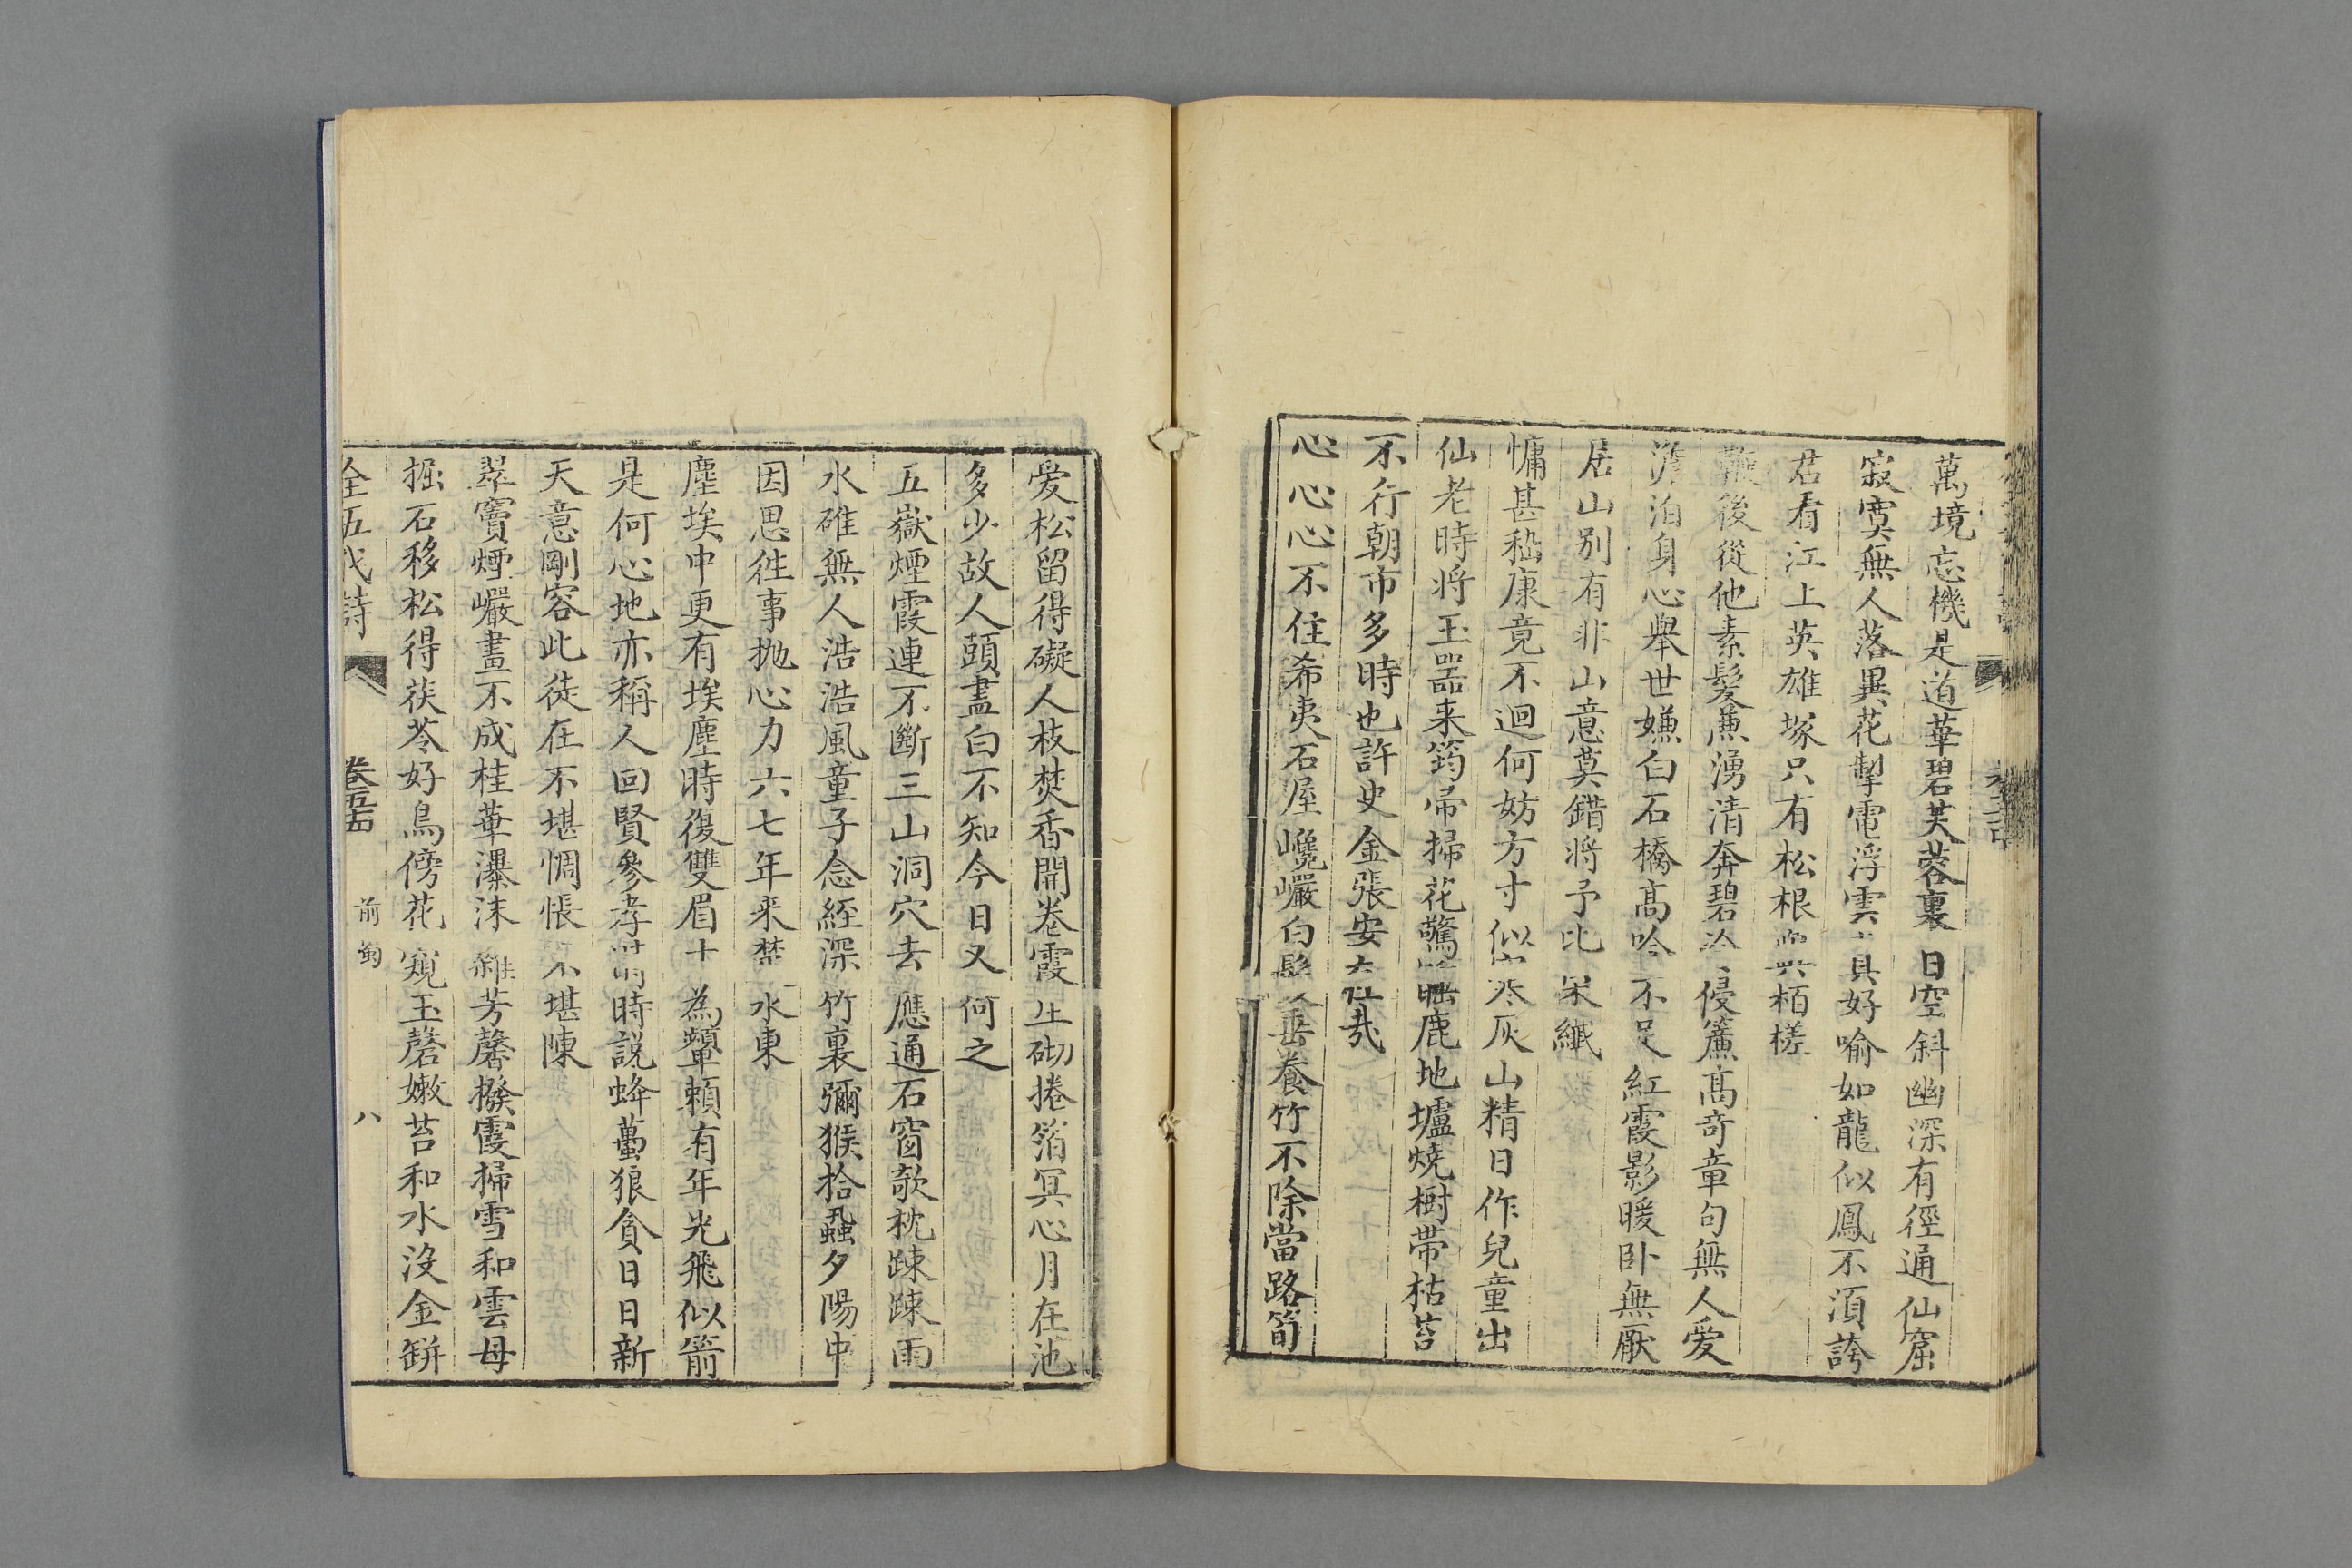 萬境忘機是道華碧芙蓉裏日空斜幽深有徑通仙窟
寂寞無人落異花掣電浮雲真好喻如龍似鳳不須誇
君看江上英雄塚只有松根與栢槎
鞭後從他素髮兼湧清奔碧冷侵簾高奇章句無人愛
澹泊身心舉世嫌白石橋高吟不足紅霞影暖卧無厭
居山別有非山意莫錯將予比宋纖
慵甚嵇康竟不迴何妨方寸似寒灰山精日作兒童出
仙老時將玉器来筠帚掃花驚睡鹿地壚燒樹帶枯苔
不行朝市多時也許史金張安在哉
心心心不住希夷石屋巉巖白髮垂養竹不除當路筍
愛松留得礙人枝焚香開卷霞生砌捲箔冥心月在池
多少故人頭盡白不知今日又何之
五嶽煙霞連不斷三山洞穴去應通石窗欹枕踈踈雨
水碓無人浩浩風童子念經深竹裏獼猴拾蝨夕陽中
因思徃事抛心力六七年来禁水東
塵埃中更有埃塵時復雙眉十為顰賴有年光飛似箭
是何心地亦稱人回賢參孝時說蜂蠆狼貪日日新
天意剛容此徒在不堪惆悵不堪陳
翠竇煙巖畫不成桂華瀑沫雜芳馨撥霞掃雪和雲母
掘石移松得茯苓好鳥傍花窺玉磬嫩苔和水沒金缾
全五代詩 卷五十四 前蜀 八